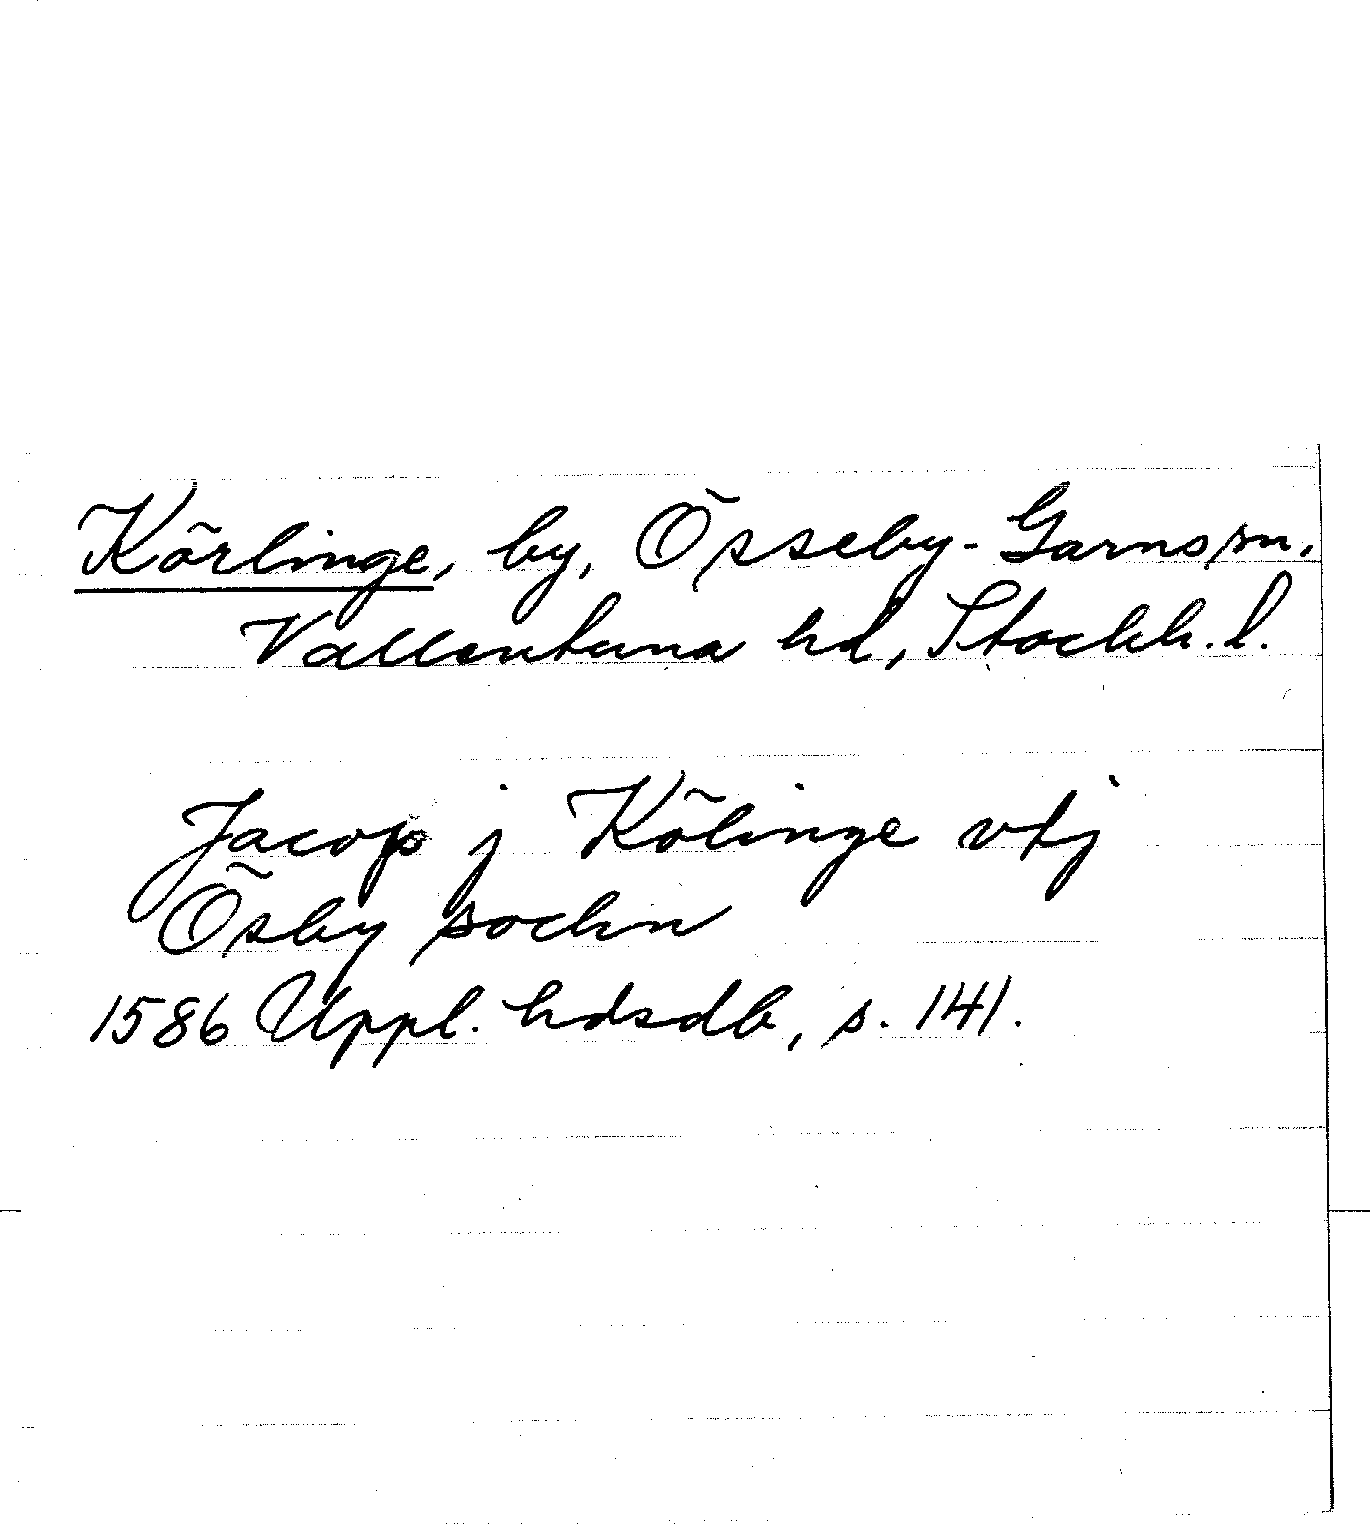 Körlinge, by, Össeby-Garns sn.
Vallentuna hd, Stockh. l.
Jacop j Kölinge vtj
Ösby sochn
1586 Uppl. hdsdb, s. 141.